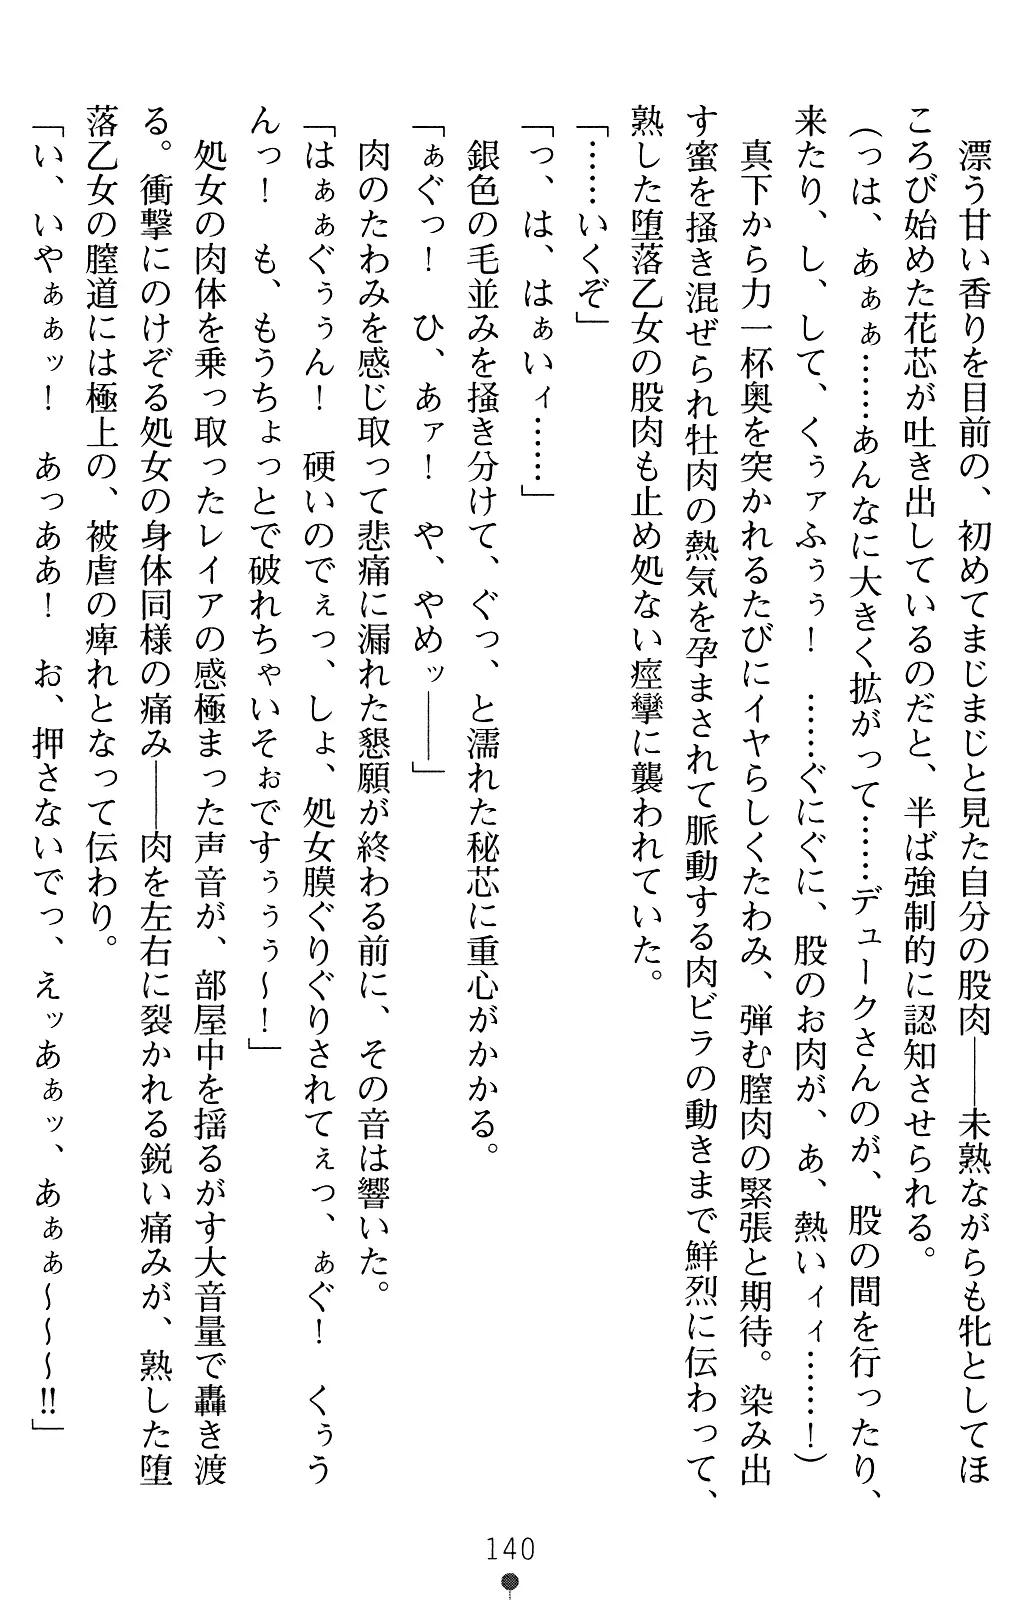 漂う甘い香りを目前の、初めてまじまじと見た自分の股肉――未熟ながらも牝としてほ
ころび始めた花芯が吐き出しているのだと、半ば強制的に認知させられる。
（っは、あぁぁ……あんなに大きく拡がって……デュークさんのが、股の間を行ったり、
来たり、し、して、くぅァふぅぅ！　……ぐにぐに、股のお肉が、あ、熱いィィ……！）
真下から力一杯奥を突かれるたびにイヤらしくたわみ、弾む膣肉の緊張と期待。染み出
す蜜を掻き混ぜられ牡肉の熱気を孕まされて脈動する肉ビラの動きまで鮮烈に伝わって、
熟した堕落乙女の股肉も止め処ない痙攣に襲われていた。
「……いくぞ」
「っ、は、はぁいィ……」
銀色の毛並みを掻き分けて、ぐっ、と濡れた秘芯に重心がかかる。
「ぁぐっ！　ひ、あァ！　や、やめッ――」
肉のたわみを感じ取って悲痛に漏れた懇願が終わる前に、その音は響いた。
「はぁぁぐぅぅん！　硬いのでぇっ、しょ、処女膜ぐりぐりされてぇっ、ぁぐ！　くぅう
んっ！　も、もうちょっとで破れちゃいそぉですぅぅぅ～！」
処女の肉体を乗っ取ったレイアの感極まった声音が、部屋中を揺るがす大音量で轟き渡
る。衝撃にのけぞる処女の身体同様の痛み――肉を左右に裂かれる鋭い痛みが、熟した堕
落乙女の膣道には極上の、被虐の痺れとなって伝わり。
「い、いやぁぁッ！　あっああ！　お、押さないでっ、えッあぁッ、あぁぁ～～～!!」
140